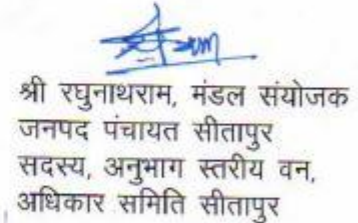 श्री रघुनाथराम, मंडल संयोजक
जनपद पंचायत सीतापुर
सदस्य, अनुभाग स्तरीय वन,
अधिकार समिति सीतापुर